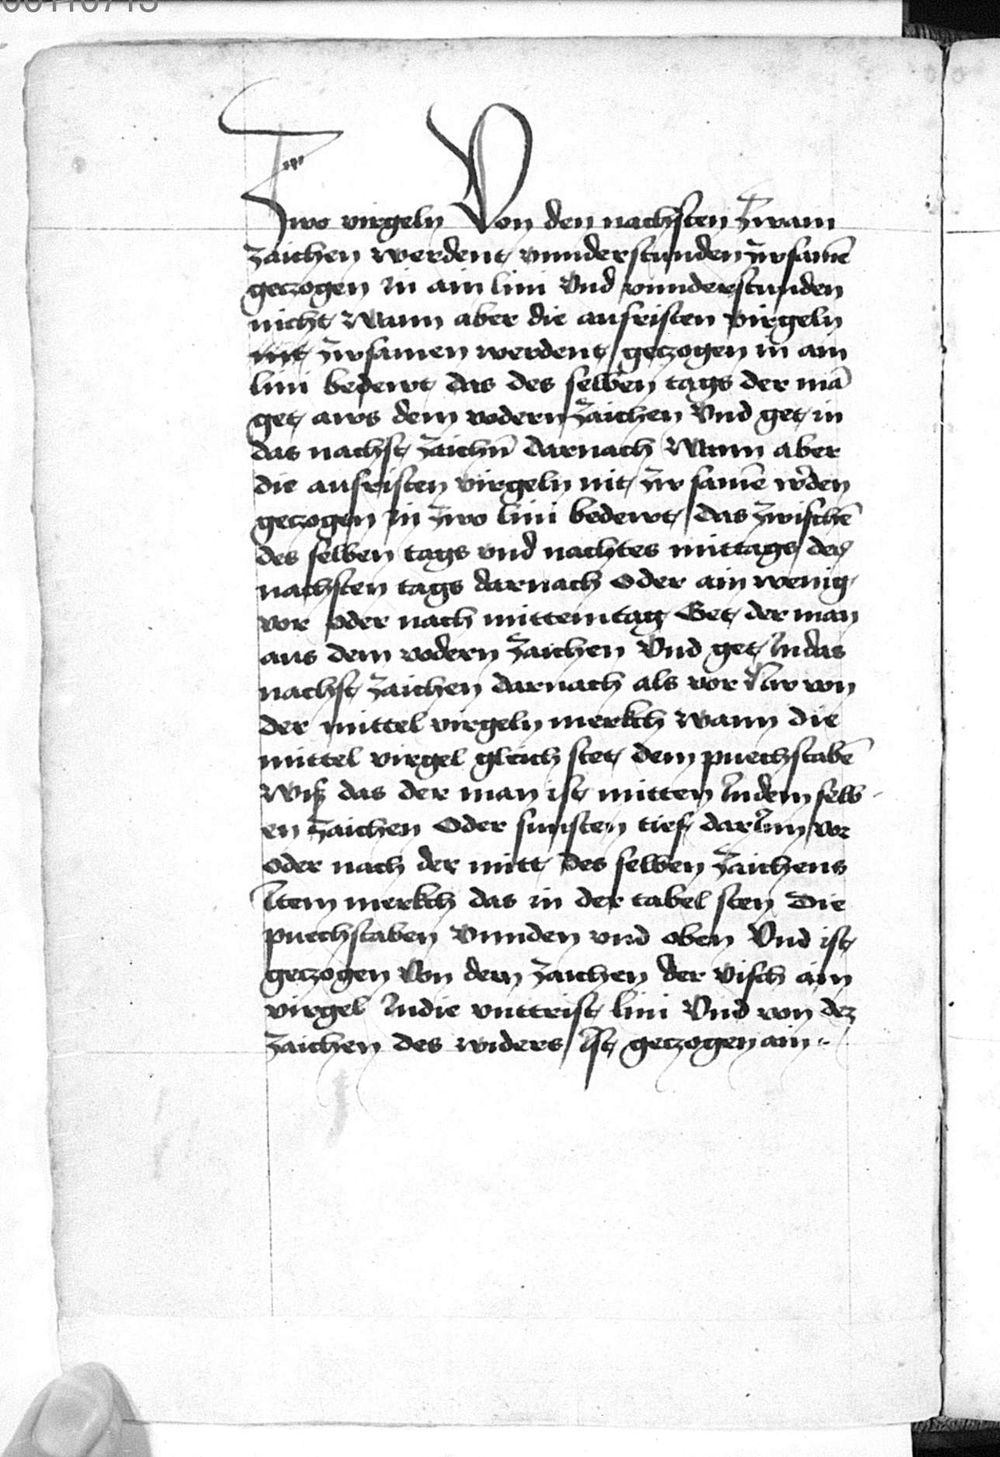 Zwo virgeln Von den nachsten zwain
zaichen werdent vnnderstunden zwsamē
geczogen in ain lini Vnd vnnderstunden
nicht Wann aber die aufristen virgeln
mit zwsamen werdent geczogen in ain
lini bedewt das des selben tags der mā
get aws dem vodern zaichen Vnd get in
das nachst zaichn̄ darnach Wann aber
die aufristen virgeln nit zw samē wˀden
geczogen in zwo lini bedewt das zwischē
des selben tags vnd nachtes mittags des
nachsten tags darnach Oder ain wenig
vor oder nach mittemtag Get der man
aus dem vodern zaichen Vnd get In das
nachst zaichen darnach als vor Nw von
der mittel virgeln merkch wann die
mittel virgel gleich stet dem puechstabē
Wiß das der man ist mitten In dem selb-
en zaichen Oder sunsten tief darInn vor
oder nach der mitt Des selben zaichens
Item merkch das in der tabel sten Die
puechstaben Vnnden vnd oben Vnd ist
geczogen Von dem zaichen der visch ain
virgel In die vnttrist lini Vnd von dez
zaichen des widers Ist geczogen ain